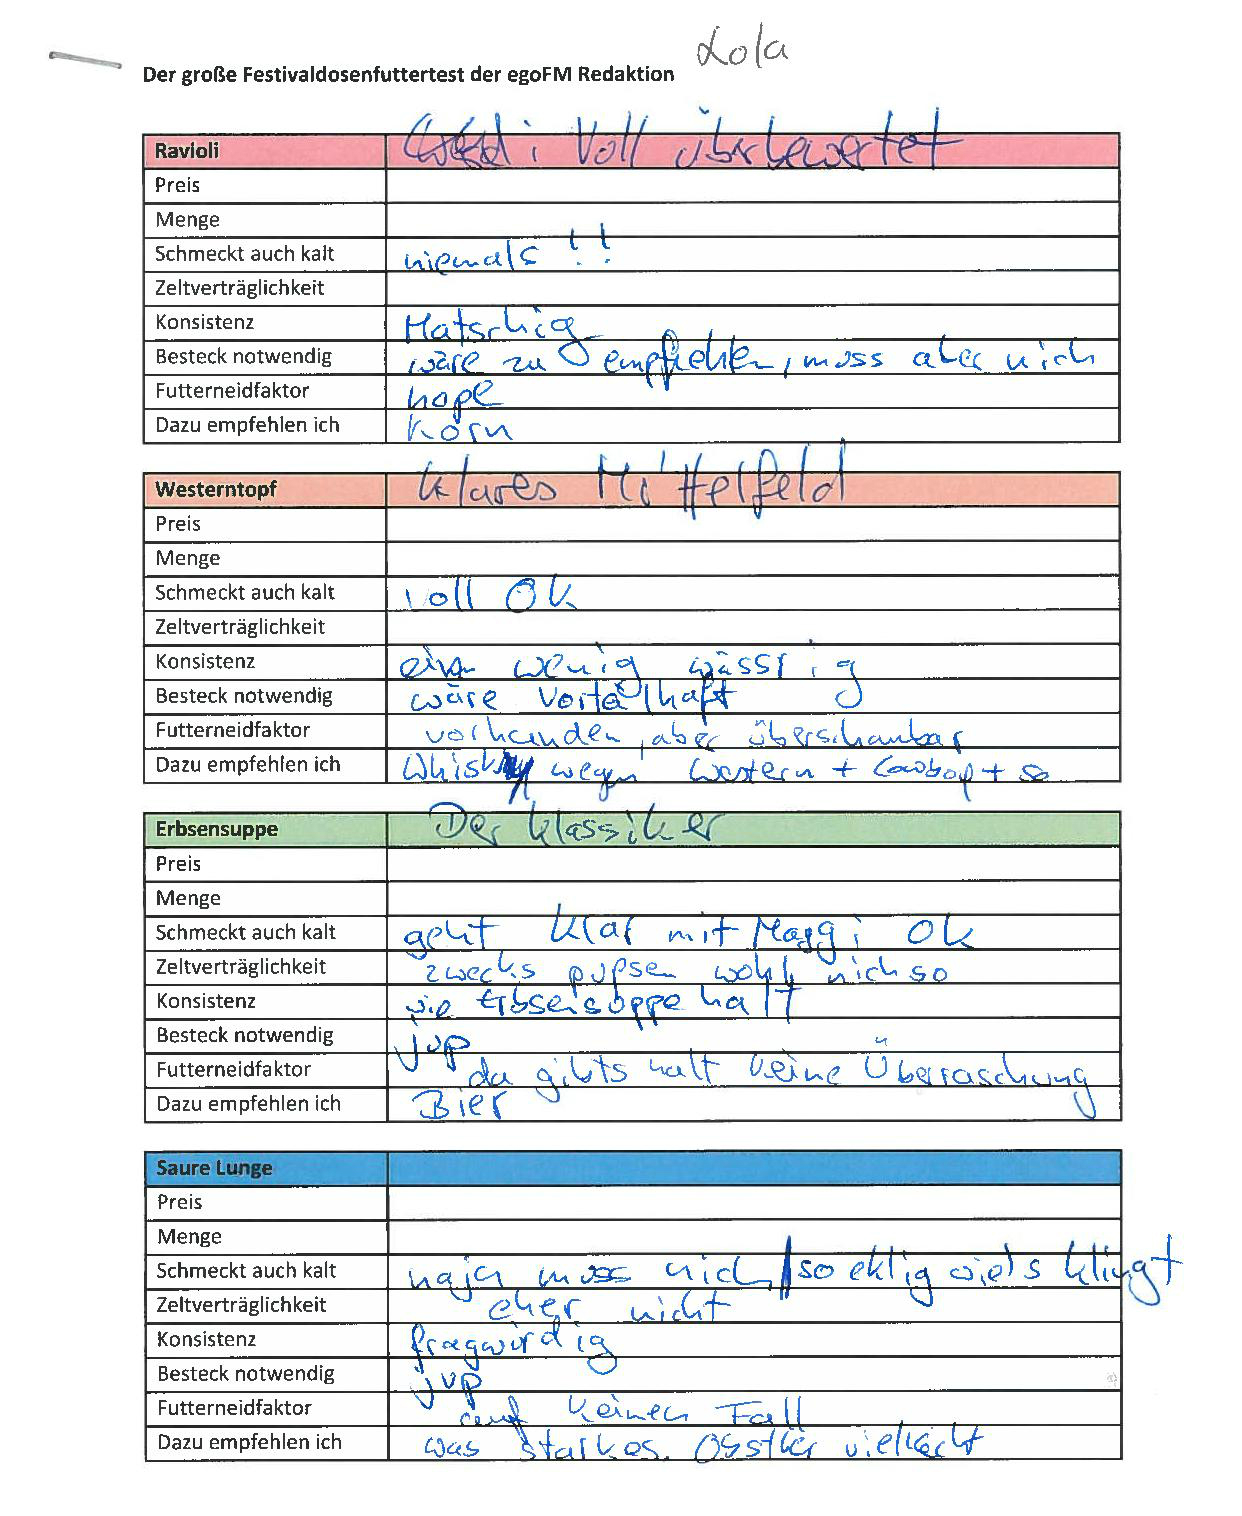 Lola
Der große Festivaldosenfuttertest der egoFM Redaktion
Ravioli voll überbewertet
Preis
Menge
Schmeckt auch kalt niemals !!
Zeltverträglichkeit
Konsistenz Matschig
Besteck notwendig wäre zu empfehlen, muss aber nich
Futterneidfaktor nope
Dazu empfehlen ich Korn
Westerntopf klares Mittelfeld
Preis
Menge
Schmeckt auch kalt voll OK
Zeltverträglichkeit
Konsistenz ein wenig wässrig
Besteck notwendig wäre vorteilhaft
Futterneidfaktor vorhanden, aber überschaubar
Dazu empfehlen ich Whisky wegen Western + Cowboy + so
Erbsensuppe Der Klassiker
Preis
Menge
Schmeckt auch kalt geht klar mit Maggi OK
Zeltverträglichkeit zwecks pupsen wohl nich so
Konsistenz wie Erbsensuppe halt
Besteck notwendig jup
Futterneidfaktor da gibts halt keine Überraschung
Dazu empfehlen ich Bier
Saure Lunge
Preis
Menge
Schmeckt auch kalt naja muss nich / so eklig wie's klingt
Zeltverträglichkeit eher nicht
Konsistenz fragwürdig
Besteck notwendig jup
Futterneidfaktor auf keinen Fall
Dazu empfehlen ich was starkes. Obstler vielleicht